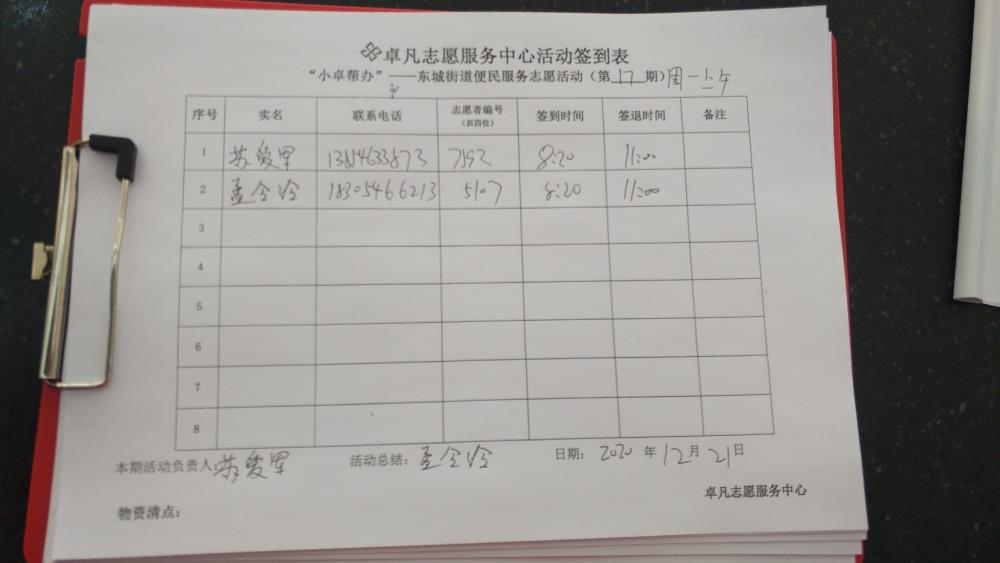 卓凡志愿服务中心活动签到表
“小卓帮办”——东城街道便民服务志愿活动（第 17 期）周一上午
序号 实名 联系电话 志愿者编号（后四位） 签到时间 签退时间 备注
1 苏爱军 13854633873 7592 8:20 11:00
2 孟令玲 18305466213 5107 8:20 11:00
3
4
5
6
7
8
本期活动负责人：苏爱军 活动总结：孟令玲 日期：2020 年 12 月 21 日
卓凡志愿服务中心
物资清点：